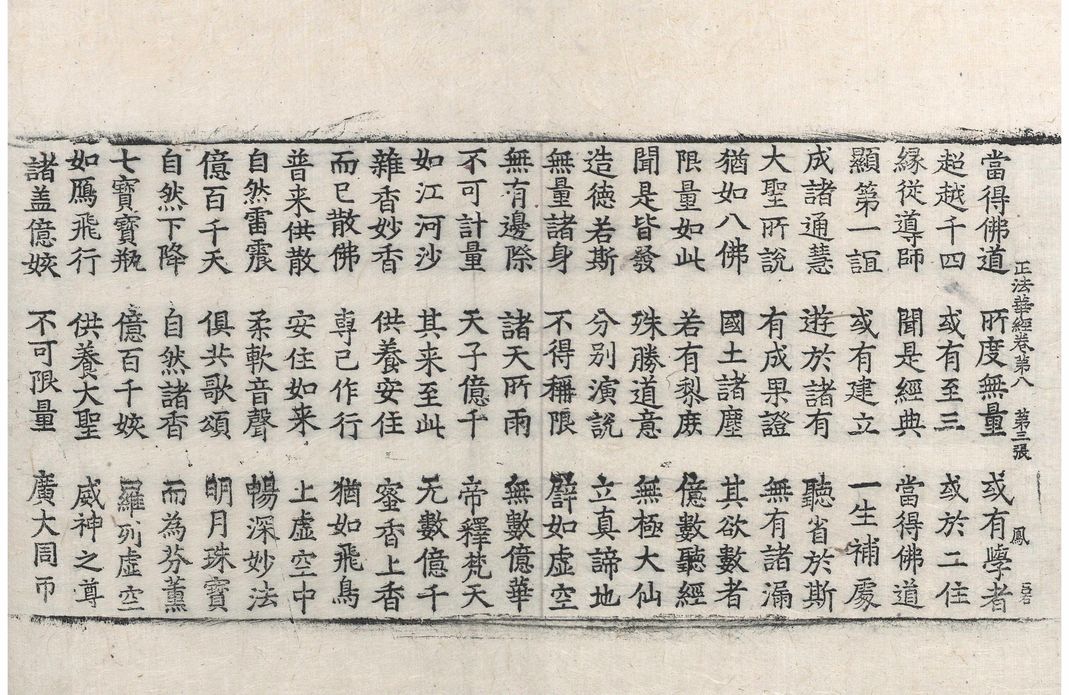 正法華經卷第八 第三張 鳳
當得佛道 所度無量 或有學者
超越千四 或有至三 或於二住
緣從導師 聞是經典 當得佛道
顯第一誼 或有建立 一生補處
成諸通慧 遊於諸有 聽省於斯
大聖所說 有成果證 無有諸漏
猶如八佛 國土諸塵 其欲數者
限量如此 若有黎庶 億數聽經
聞是皆發 殊勝道意 無極大仙
造德若斯 分別演說 立真諦地
無量諸身 不得稱限 譬如虛空
無有邊際 諸天所雨 無數億華
不可計量 天子億千 帝釋梵天
如江河沙 其来至此 无數億千
雜香妙香 供養安住 蜜香上香
而已散佛 專已作行 猶如飛鳥
普来供散 安住如来 上虛空中
自然雷震 柔軟音聲 暢深妙法
億百千天 俱共歌頌 明月珠寶
自然下降 自然諸香 而為芬薰
七寶寶瓶 億百千姟 羅列虛空
如鴈飛行 供養大聖 威神之尊
諸盖億姟 不可限量 廣大周帀